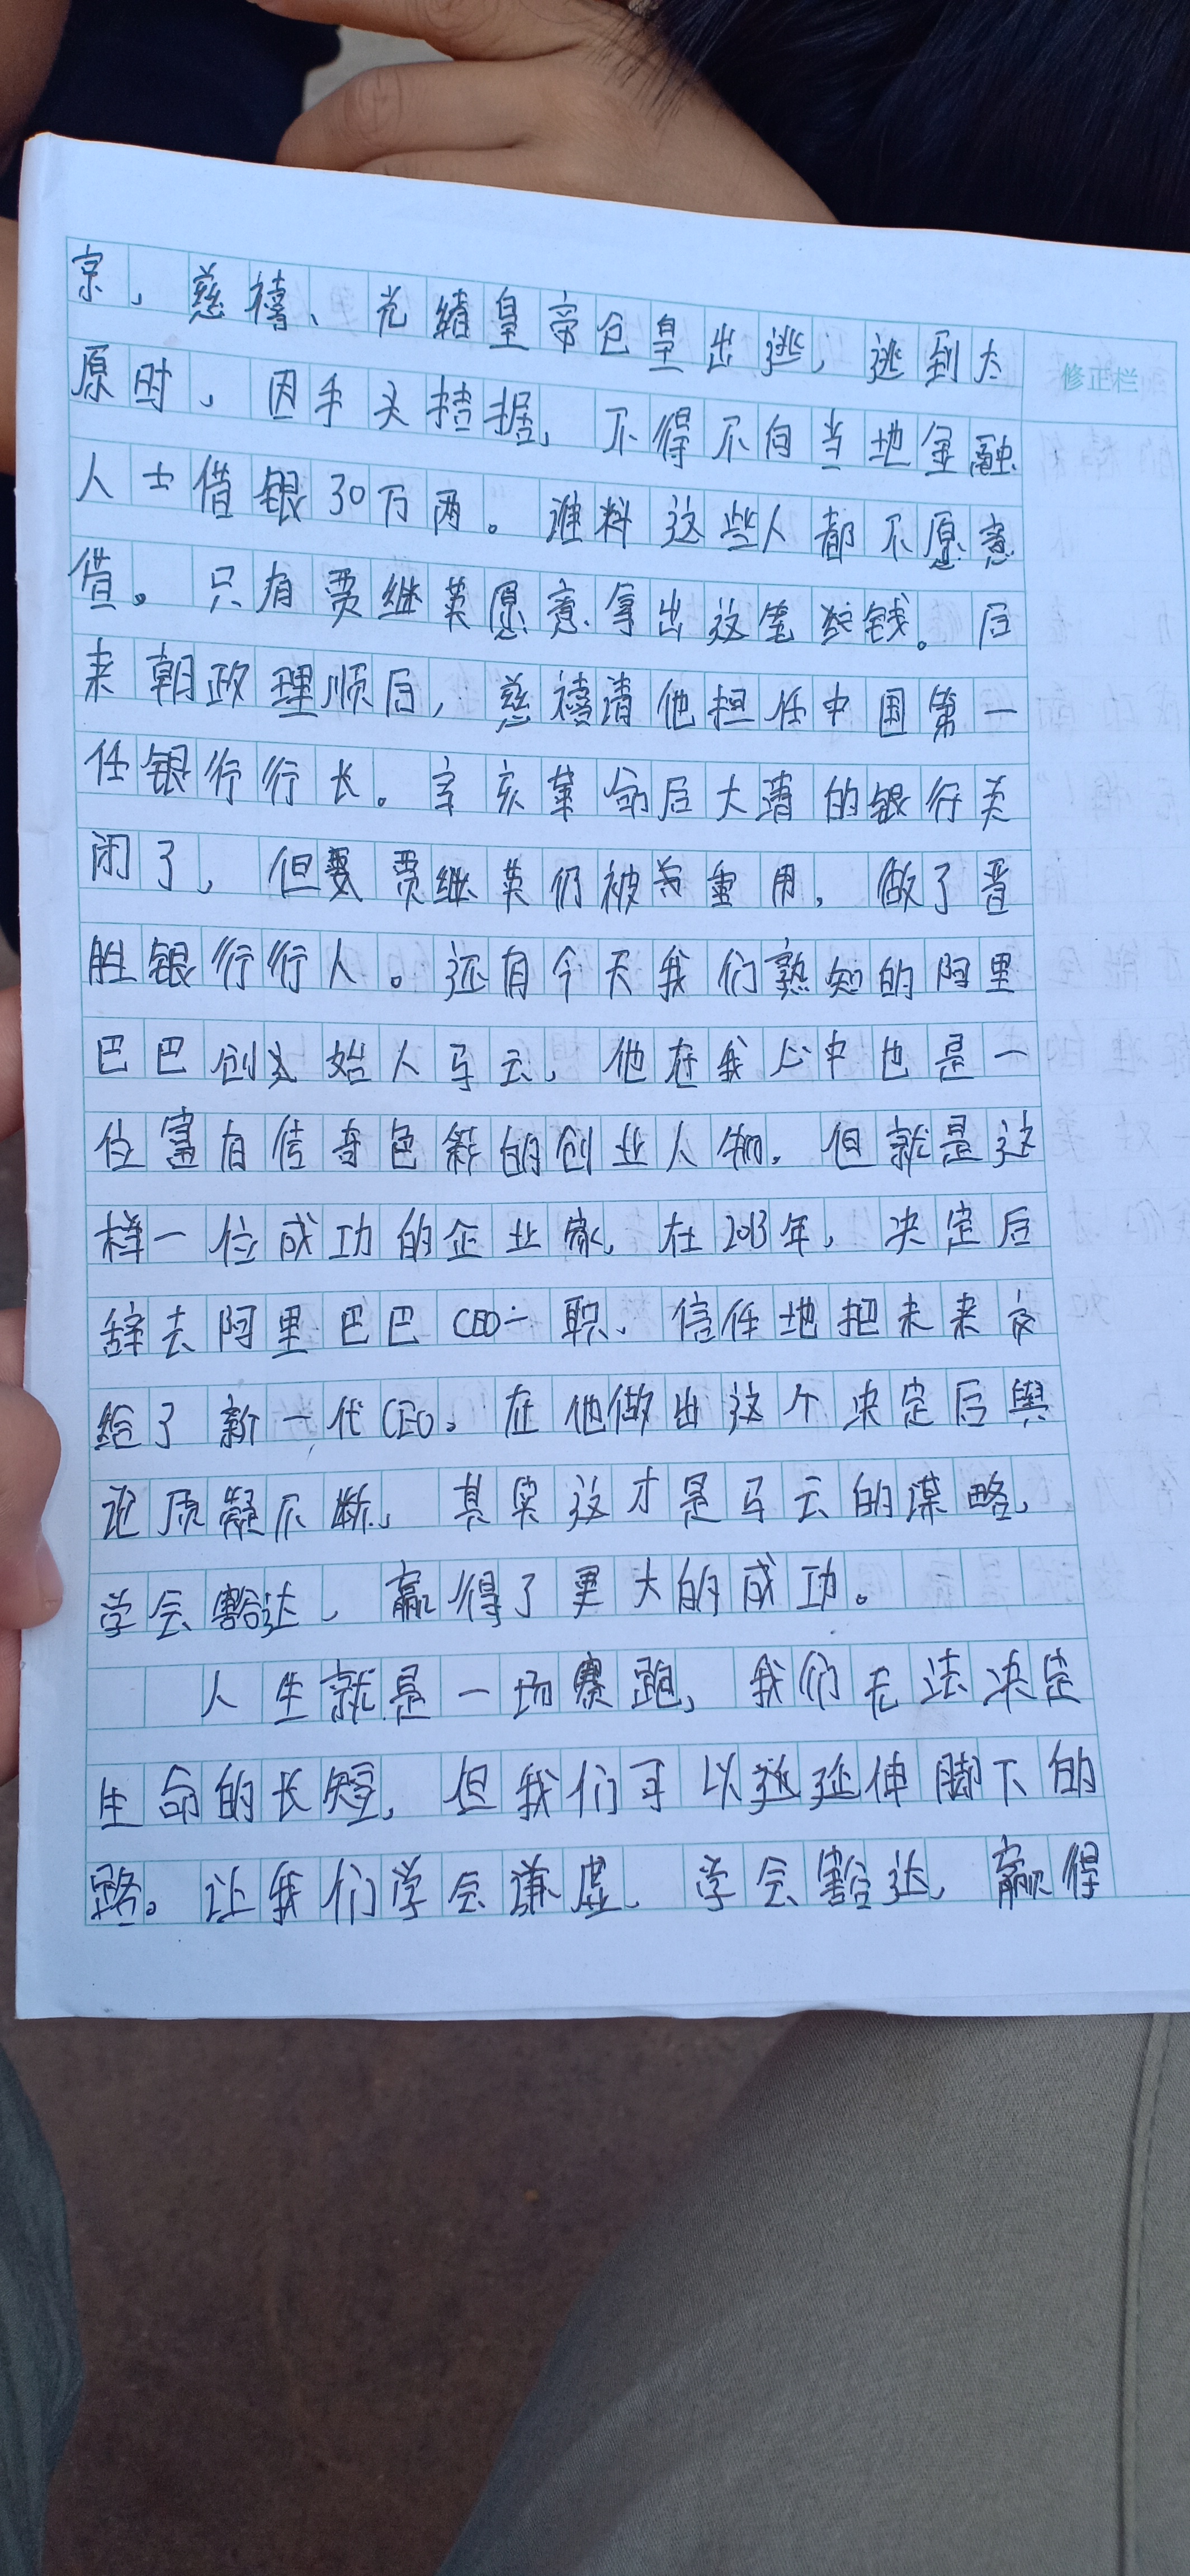 京，慈禧、光绪皇帝仓皇出逃，逃到太
修正栏
原时，因手头拮据，不得不向当地金融
人士借银30万两。谁料这些人都不愿意
借。只有贾继英愿意拿出这笔钱。后
来朝政理顺后，慈禧请他担任中国第一
任银行行长。辛亥革命后大清的银行关
闭了，但贾继英仍被重用，做了晋
胜银行行人。还有今天我们熟知的阿里
巴巴创始人马云，他在我心中也是一
位富有传奇色彩的创业人物，但就是这
样一位成功的企业家，在2013年，决定后
辞去阿里巴巴CEO一职，信任地把未来交
给了新一代CEO。在他做出这个决定后舆
论质疑不断，其实这才是马云的谋略，
学会豁达，赢得了更大的成功。
人生就是一场赛跑，我们无法决定
生命的长短，但我们可以延伸脚下的
路。让我们学会谦虚，学会豁达，赢得